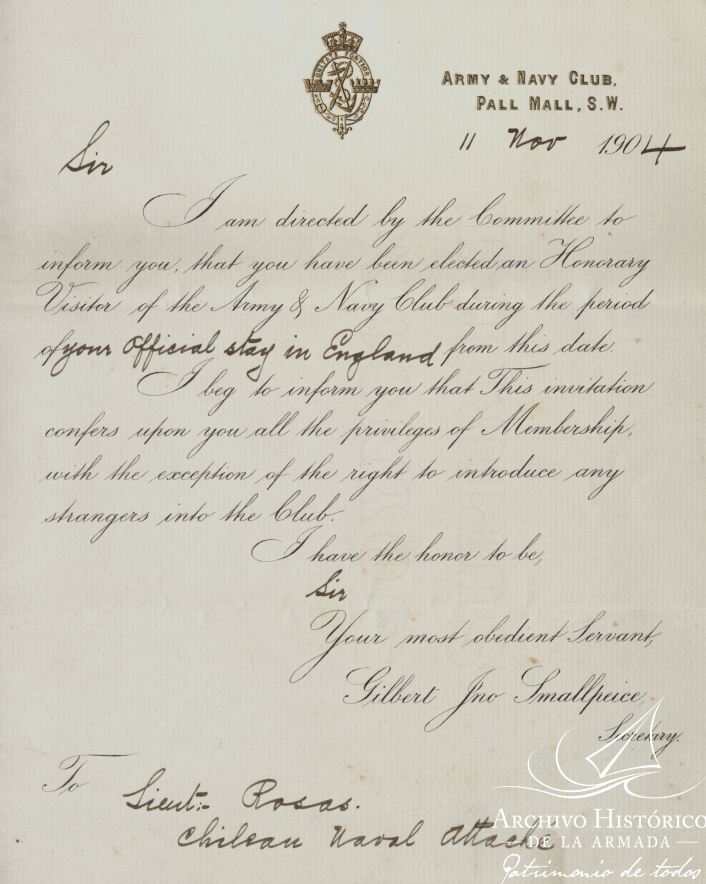 UNITATE FORTIOR
ARMY & NAVY CLUB,
PALL MALL, S.W.
11 Nov 1904
Sir
I am directed by the Committee to
inform you, that you have been elected an Honorary
Visitor of the Army & Navy Club during the period
of your Official stay in England from this date.
I beg to inform you that This invitation
confers upon you all the privileges of Membership,
with the exception of the right to introduce any
strangers into the Club.
I have the honor to be,
Sir
Your most obedient Servant,
Gilbert Jno Smallpeice,
Secretary.
To
Lieut:- Rosas.
Chilean Naval Attaché
ARCHIVO HISTÓRICO
DE LA ARMADA
Patrimonio de todos